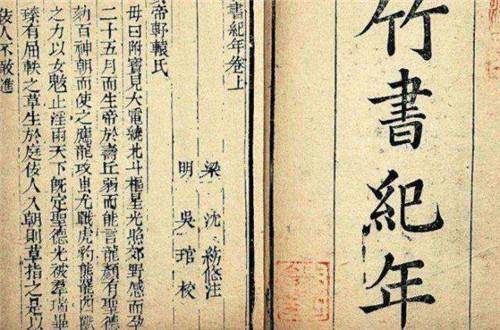 竹書紀年
書紀年卷上
梁 沈約附注
明 吳琯校
帝軒轅氏
母曰附寶見大電繞北斗樞星光照郊野感而孕
二十五月而生帝於壽丘弱而能言龍顏有聖德
劾百神朝而使之應龍攻蚩尤戰虎豹熊羆四獸
之力以女魃止淫雨天下既定聖德光被群瑞畢
臻有屈軼之草生於庭佞人入朝則草指之是以
佞人不敢進